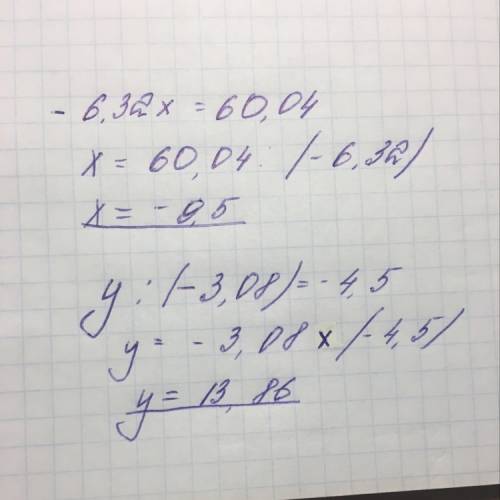 - 6,32x = 60,04
x = 60,04 : (- 6,32)
x = - 9,5
y : (- 3,08) = - 4,5
y = - 3,08 x (- 4,5)
y = 13,86